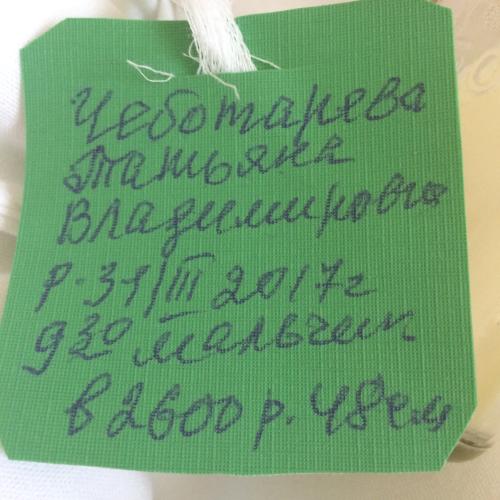 Чеботарева
Татьяна
Владимировна
р-31/III 2017г
9 20 мальчик
в 2600 р. 48 см